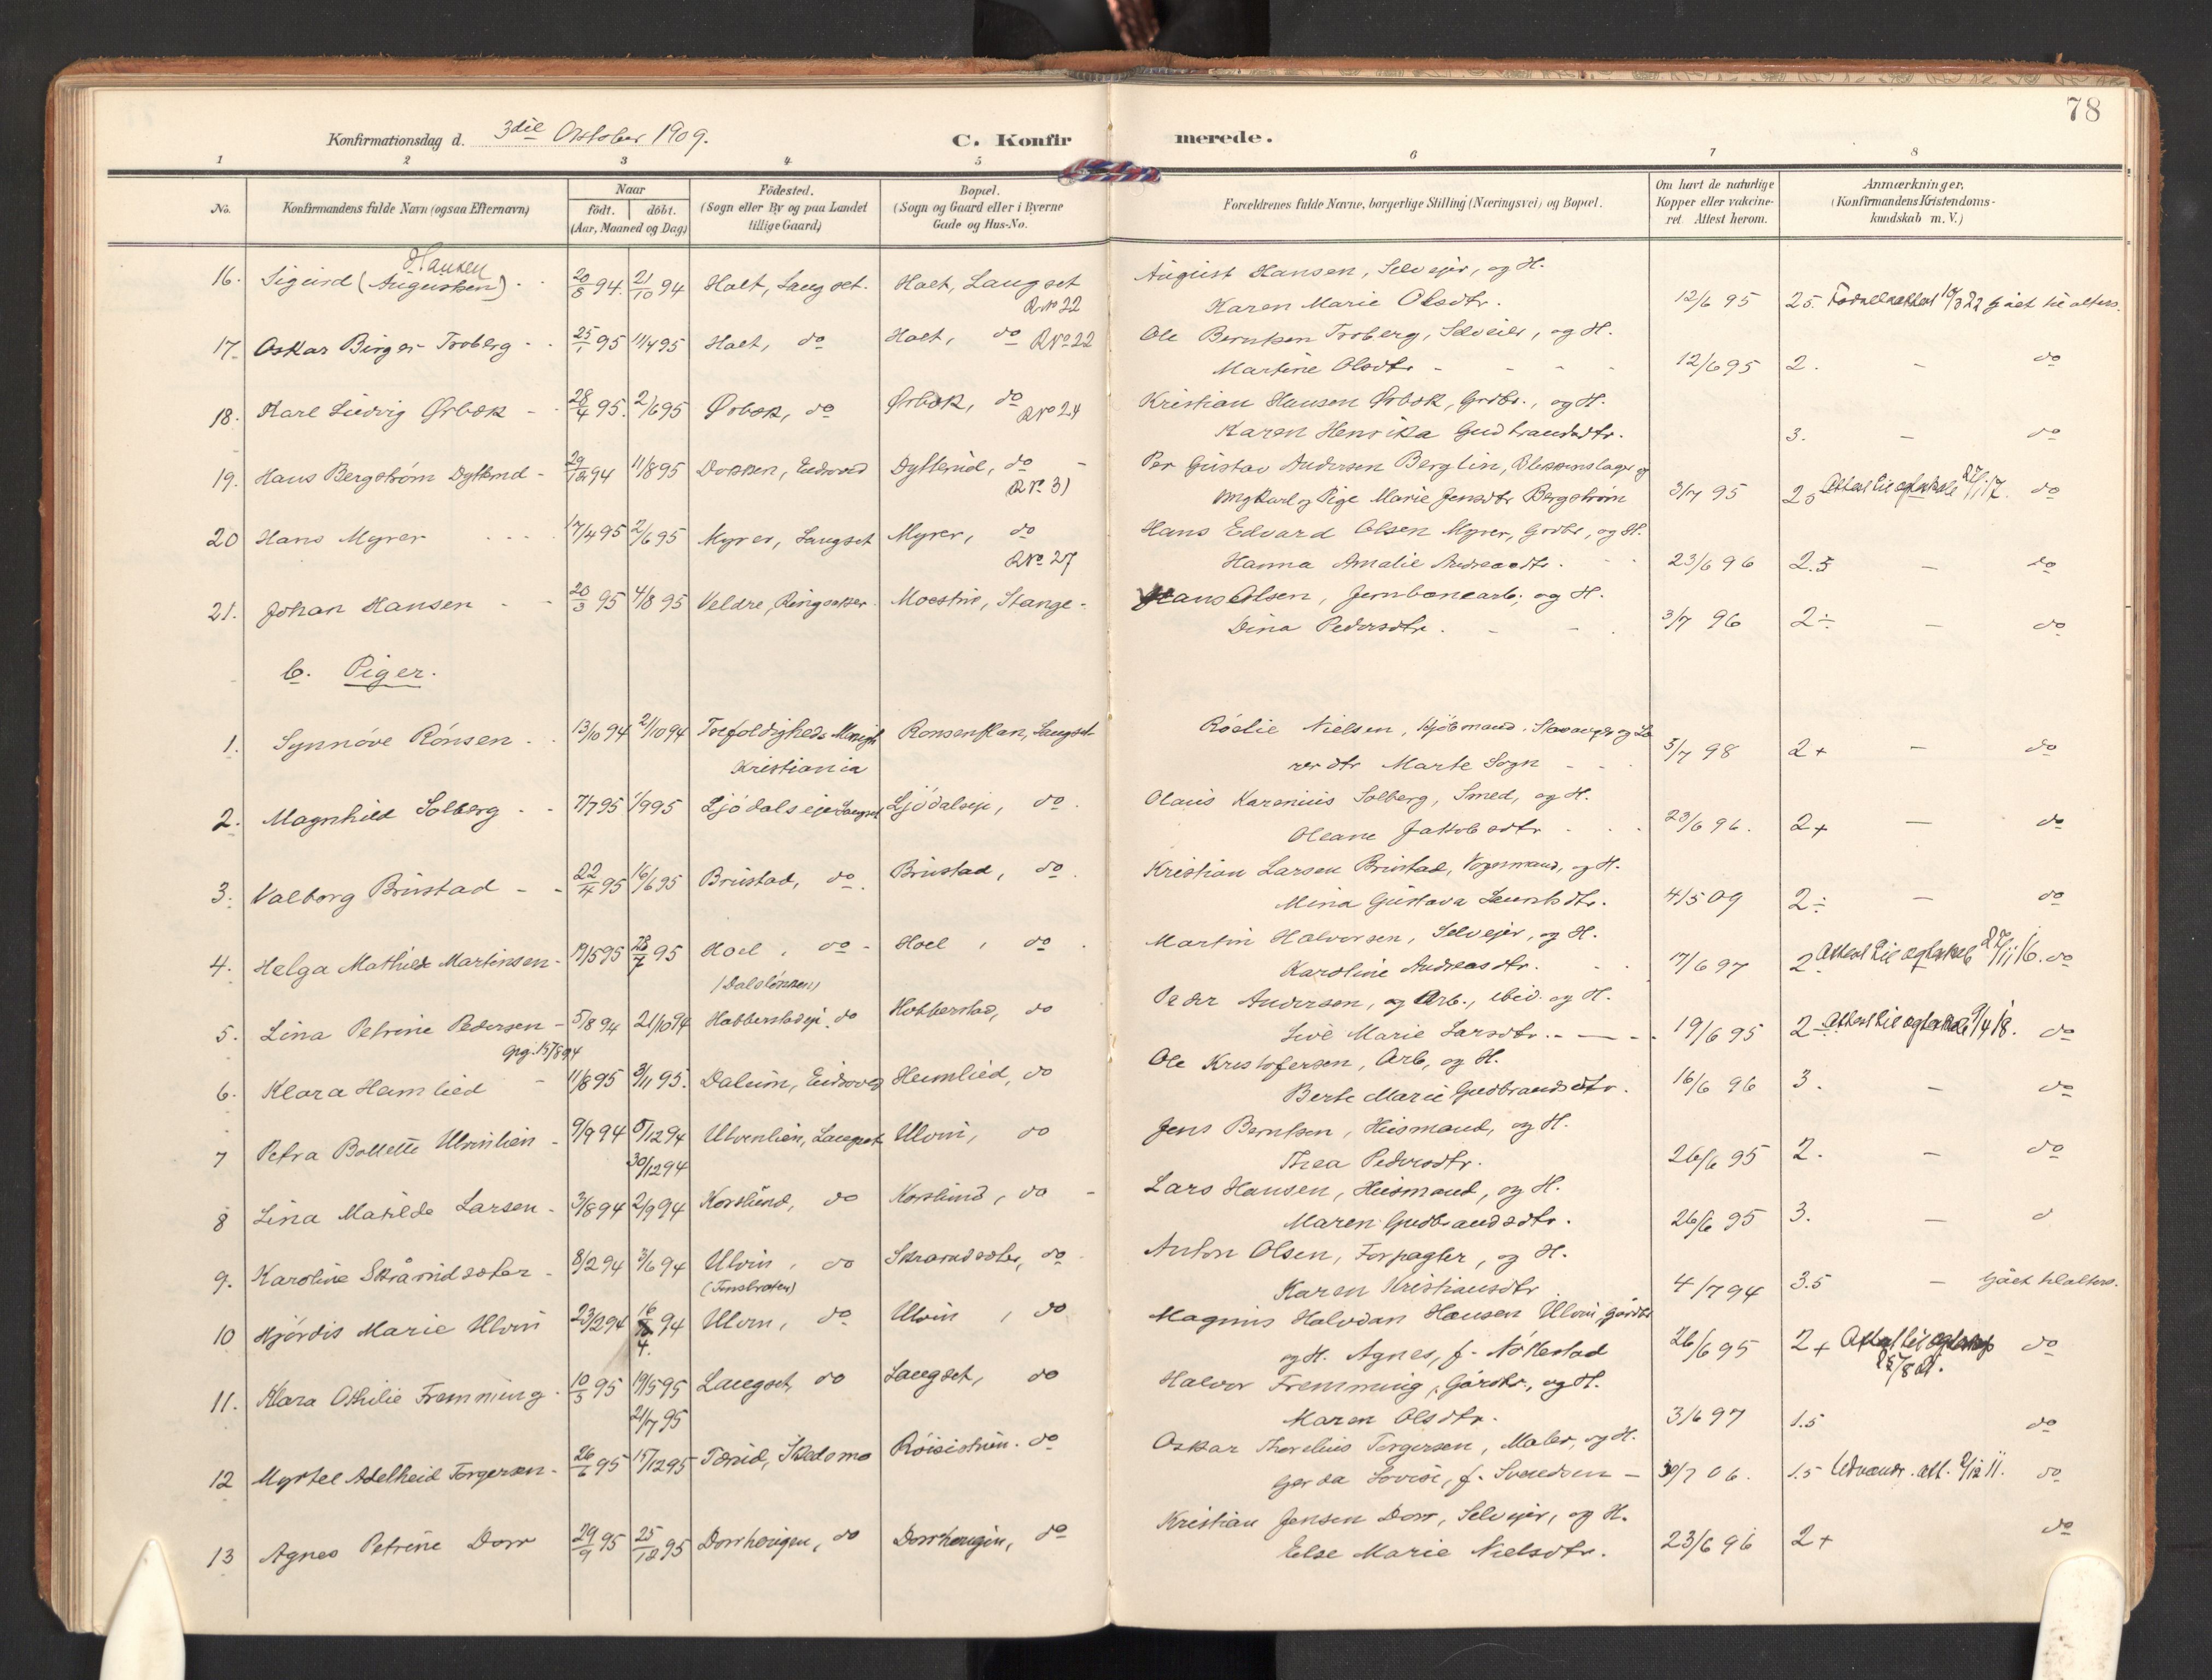 78
Konfirmationsdag d. 3die Oktober 1909.
C. Konfirmerede.
1 2 3 4 5 6 7 8
No.
Konfirmandens fulde Navn (ogsaa Efternavn)
Naar
födt. döbt.
(Aar, Maaned og Dag)
Födested.
(Sogn eller By og paa Landet
tillige Gaard)
Bopæl.
(Sogn og Gaard eller i Byerne
Gade og Hus-No.
Forældrenes fulde Navne, borgerlige Stilling (Næringsvei) og Bopæl.
Om havt de naturlige
Kopper eller vakcine-
ret. Attest herom.
Anmærkninger.
(Konfirmandens Kristendoms-
kundskab m. V.)
Hansen
16. Sigurd (Augustsen) 20/8 94. 21/10 94 Hoel, Langset. Hoel, Langset August Hansen, Selvejer, og H.
R No 22 Karen Marie Olsdtr. 12/6 95 2.5 Gået til alters.
17. Oskar Birger Troberg 25/1 95 11/4 95 Hoel, do Hoel, do R No 22 Ole Berntsen Troberg, Selveier, og H.
Martine Olsdtr 12/6 95 2. - do
18. Karl Ludvig Ørbæk 28/4 95. 2/6 95 Ørbæk, do Ørbæk, do R No 24 Kristian Hansen Ørbæk, Grdbr., og H.
Karen Henrika Gudbrandsdtr. 3. - do
19. Hans Bergstrøm Dytterud 29/12 94 11/8 95 Dokken, Eidsvold Dytterud, do R No 31 Per Gustav Andersen Berglin, Blikkenslager og
Ungkarl og Pige Marie Jensdtr Bergstrøm 3/7 95 Attest til ekteskab 27/1 17. do
20 Hans Myrer 17/4 95 2/6 95 Myrer, Langset Myrer, do R No 27 Hans Edvard Olsen Myrer, Grdbr, og H.
Hanna Amalie Andreasdtr. 23/6 96 2.5 - do
21. Johan Hansen 20/3 95 4/8 95 Veldre, Ringsaker Moestue, Stange Hans Olsen, Jernbanearb., og H.
Dina Pedersdtr. 3/7 96 2÷ - do
b. Piger.
1. Synnöve Rönsen 13/10 94 21/10 94 Trefoldigheds Menigh Ronsenflan, Langset Röelie Nielsen, Kjöbmand, Stavanger og Læ
Kristiania rerdtr Marte Sogn 3/7 98 2+ - do
2. Magnhild Solberg 7/7 95 1/9 95 Ljödalseje Langset Ljödalseje, do. Olaus Karenius Solberg, Smed, og H.
Oleane Jakobsdtr 23/6 96. 2+ - do
3. Valborg Brustad 22/4 95 16/6 95 Brustad, do. Brustad, do. Kristian Larsen Brustad, Vognmand, og H.
Mina Gustava Lauritsdtr. 4/5 09 2÷ - do
4. Helga Mathilde Martinsen 19/5 95 28/7 95 Hoel, do Hoel, do Martin Halvorsen, Selvejer, og H.
(Dalslökken) Karoline Andreasdtr. 17/6 97 2 Attest til ægteskab 27/11 16. do
5. Lina Petrine Pedersen 5/8 94 21/10 94 Habberstadeje. do Hobberstad, do Peder Andersen, og Arb., ibid. og H.
Live Marie Larsdtr. 19/6 95 2 Attest til ægteskab 9/4 18. do
6. Klara Hamlied 11/8 95 3/11 95. Daleim, Eidsvold Heimlied, do Ole Kristofersen, Arb, og H.
Berte Marie Gudbrandsdtr. 16/6 96 3. - do
7 Petra Bollette Ulvinlien 9/9 94 5/12 94 Ulvinlien, Langset Ulvin, do Jens Berntsen, Husmand, og H.
30/12 94 Thea Pedersdtr. 26/6 95 2. - do
8 Lina Matilde Larsen 3/8 94 2/9 94 Korslund, do Korslund, do Lars Hansen, Husmand, og H.
Maren Gudbrandsdtr. 26/6 95 3. - d
9. Karoline Skråmdsæter 8/2 94 3/6 94 Ulvin, do Skramdsæter, do Anton Olsen, Forpagter, og H.
Karen Kristiansdtr 4/7 94 3.5 - Gået til alters.
10 Hjördis Marie Ulvin 23/2 94 16/4 94 Ulvin, do Ulvin, do Magnus Halvdan Hansen Ulvin, gårdbr
og H. Agnes, f. Nökkestad 26/6 95 2+ Attest til do
11. Klara Othilie Fremming 10/3 95 19/5 95 Langset, do Langset, do Halvor Fremming, Gårdbr., og H.
21/7 95 Maren Olsdtr. 3/6 97 1.5 do
12 Myrtel Adelheid Torgersen 26/6 95 15/12 95 Færid, Skedsmo Röisistuen. do Oskar Thorelius Torgersen, Maler, og H.
Gerda Lovise, f. Svendsen 30/7 06. 1.5 Udvandr. att. 2/12 11. do
13 Agnes Petrine Dorr 29/9 95 25/12 95 Dorrhaugen, do Dorrhaugen, do Kristian Jensen Dorr, Selvejer, og H.
Else Marie Nielsdtr. 23/6 96 2+ do